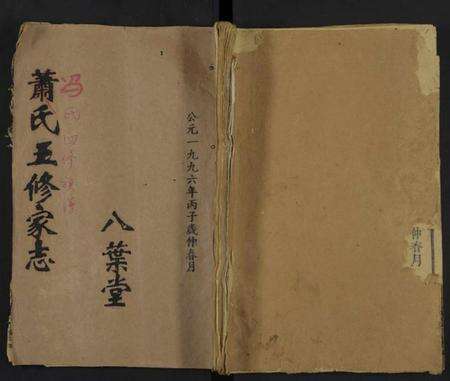 公元一九九六年丙子歲仲春月
八葉堂
蕭氏五修家志
仲春月